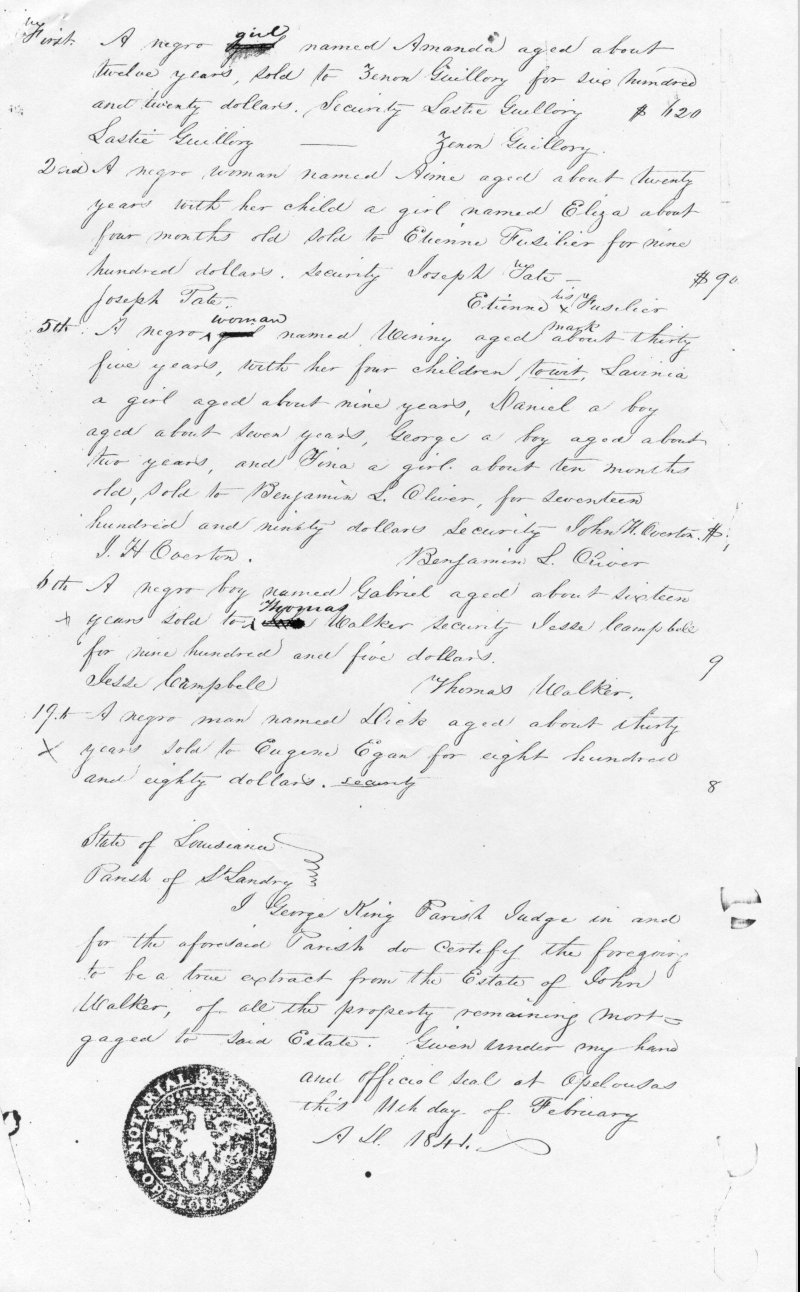 First. A negro girl named Amanda aged about
twelve years, sold to Zenon Guillory for six hundred
and twenty dollars. Security Lastie Guillory $ 620
Lastie Guillory — Zenon Guillory.
2nd A negro woman named Aime aged about twenty
years with her child a girl named Eliza about
four months old sold to Etienne Fusilier for nine
hundred dollars. security Joseph Tate — $90
Joseph Tate. Etienne his x mark Fusilier
5th A negro woman named Winny aged about thirty
five years, with her four children, towit, Lavinia
a girl aged about nine years, Daniel a boy
aged about seven years, George a boy aged about
two years, and Fina a girl about ten months
old, sold to Benjamin L. Oliver, for seventeen
hundred and ninety dollars security John H. Overton. $
J. H Overton. Benjamin L. Oliver
6th A negro boy named Gabriel aged about sixteen
x years sold to Thomas Walker security Jesse Campbell
for nine hundred and five dollars. 9
Jesse Campbell Thomas Walker.
19th A negro man named Dick aged about thirty
x years sold to Eugene Egan for eight hundred
and eighty dollars. security 8
State of Louisiana
Parish of St Landry
I George King Parish Judge in and
for the aforesaid Parish do certify the foregoing
to be a true extract from the Estate of John
Walker, of all the property remaining mort=
gaged to said Estate. Given under my hand
and official seal at Opelousas
this 11th day of February
A D. 1841.
NOTARIAL & PROBATE
OPELOUSAS